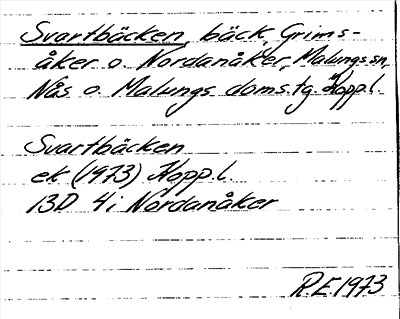 Svartbäcken, bäck, Grims-
åker o. Nordanåker, Malungs sn,
Nås o. Malungs doms.tg Kopp.l.
Svartbäcken
ek (1973) Kopp.l.
13D 4i Nordanåker
R.E. 1973